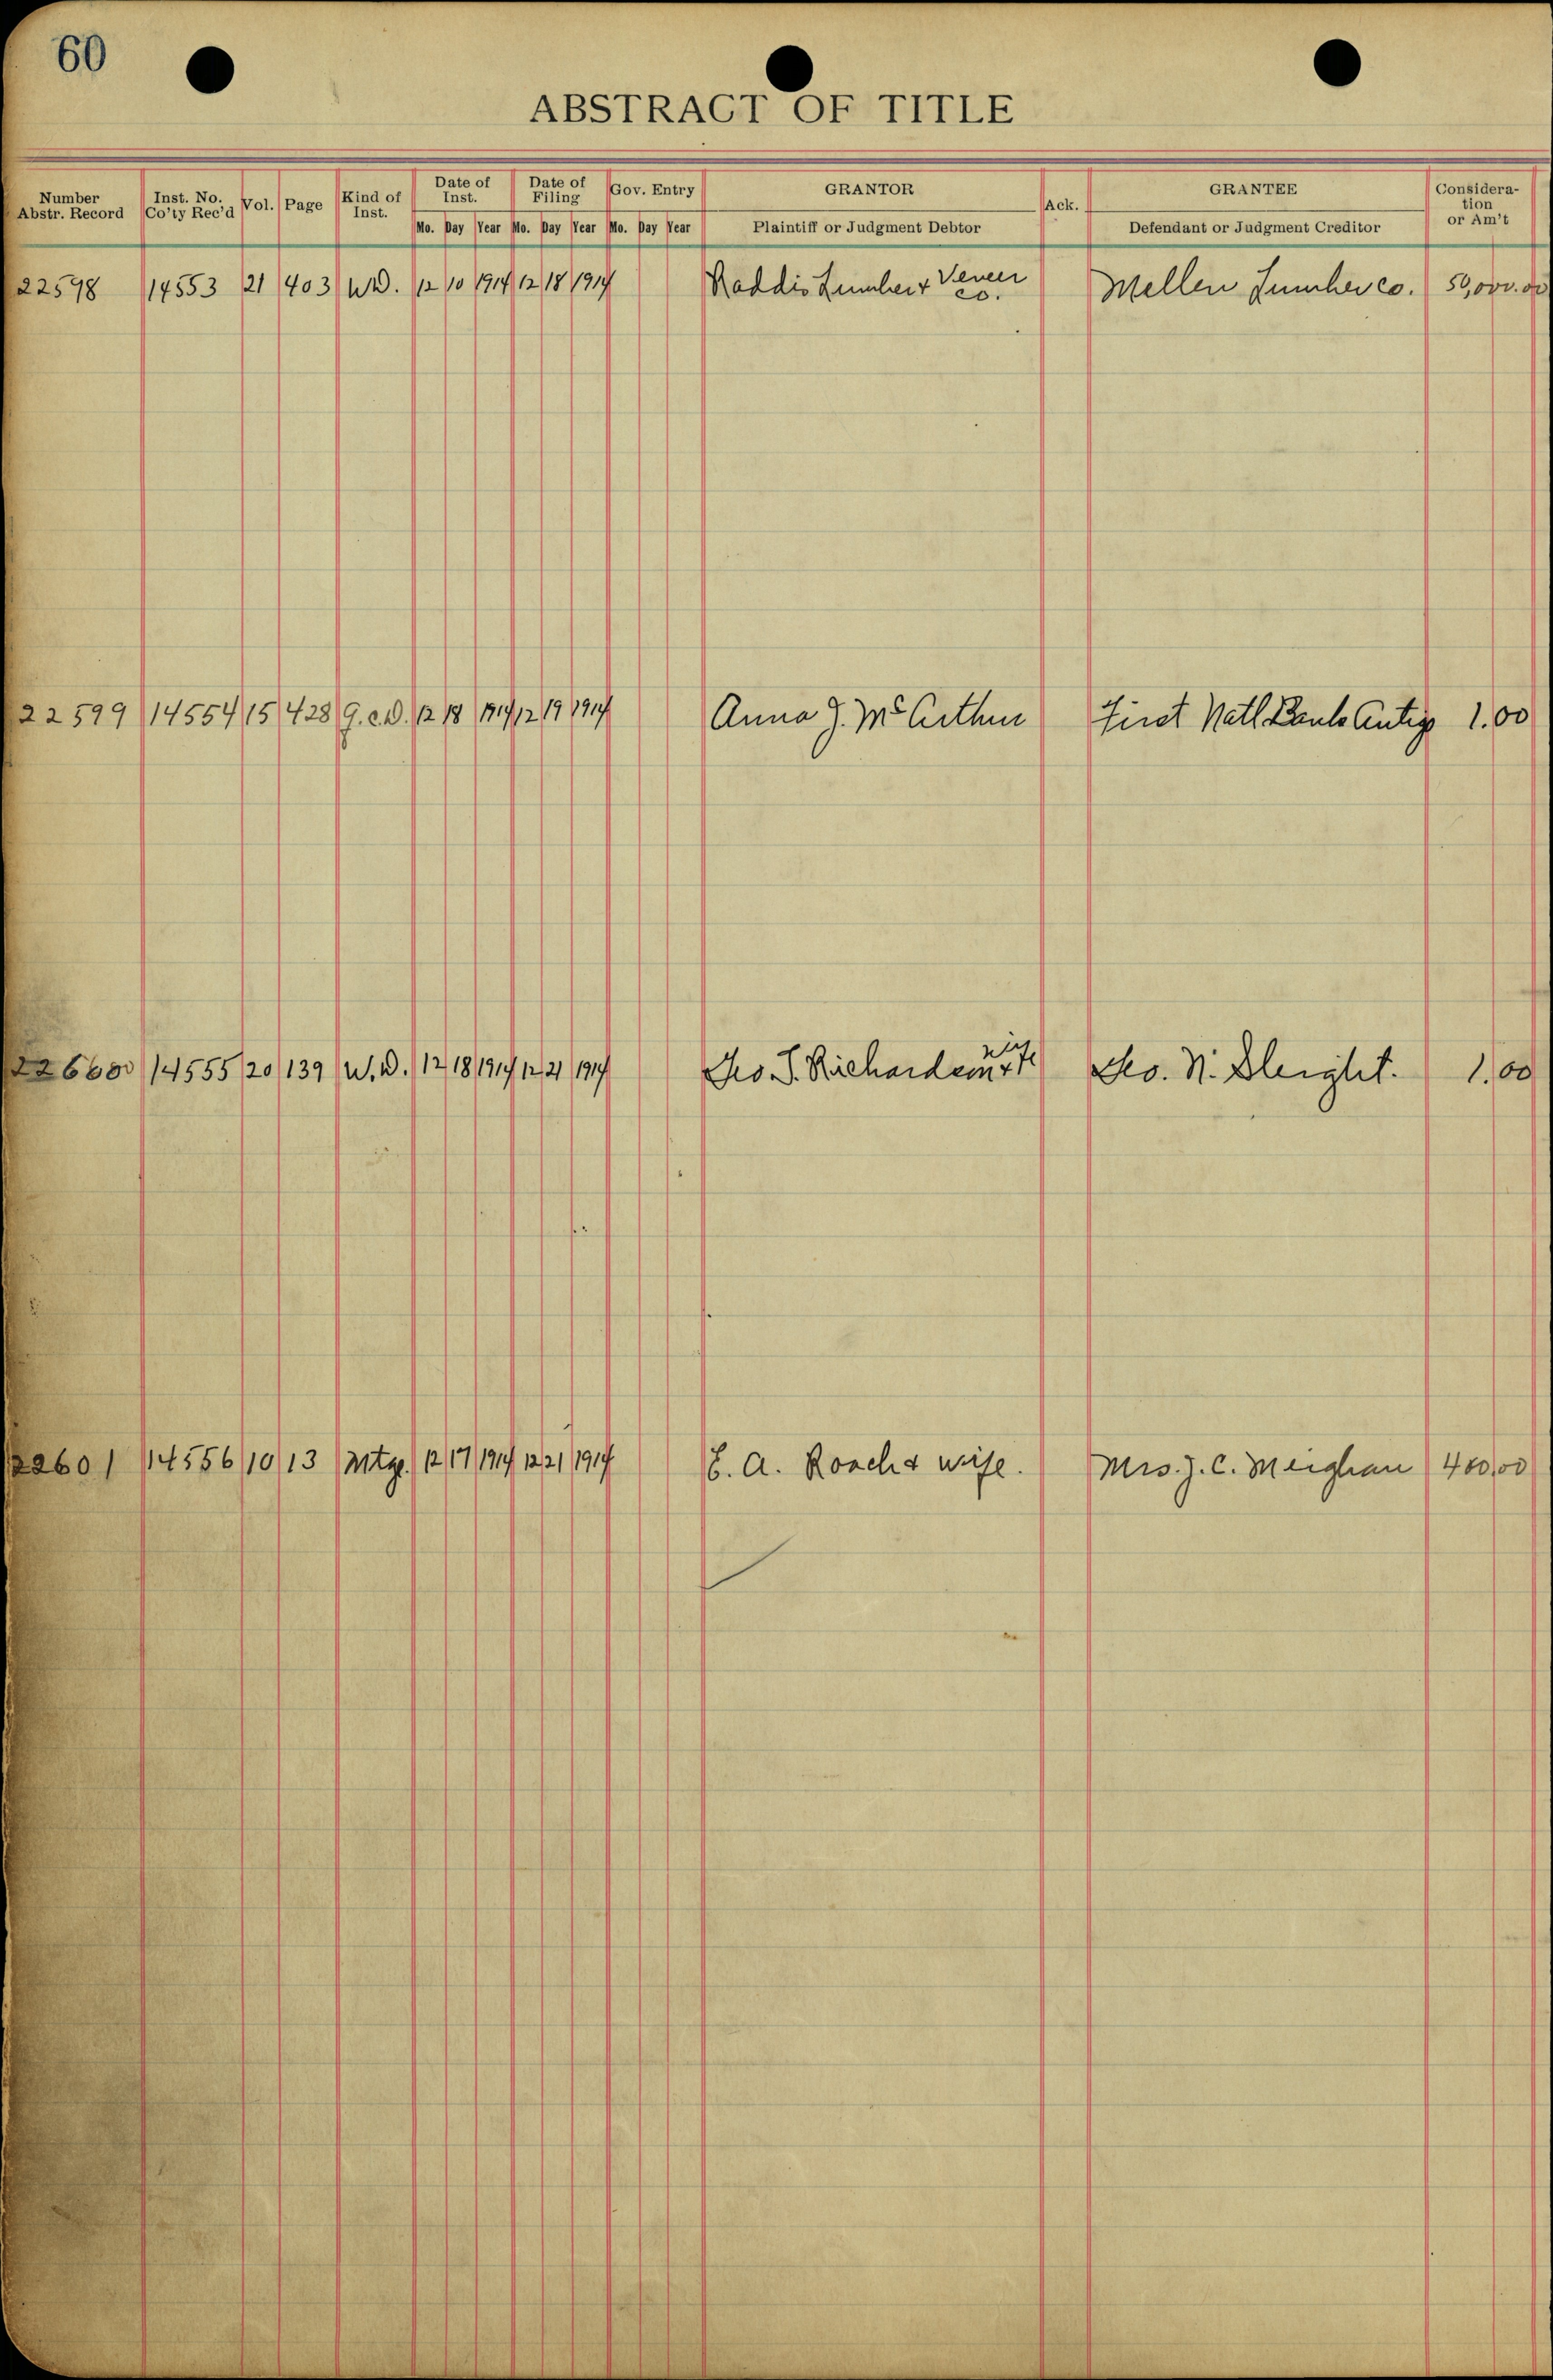 60
ABSTRACT OF TITLE
Number Abstr. Record Inst. No. Co'ty Rec'd Vol. Page Kind of Inst. Date of Inst. Mo. Day Year Date of Filing Mo. Day Year Gov. Entry Mo. Day Year GRANTOR Plaintiff or Judgment Debtor Ack. GRANTEE Defendant or Judgment Creditor Considera-tion or Am't
22598 14553 21 403 W.D. 12 10 1914 12 18 1914 Raddis Lumber & Veneer Co. Mellen Lumber Co. 50,000.00
22599 14554 15 428 Q.C.D. 12 18 1914 12 19 1914 Anna J. McArthur First Natl Bank Antigo 1.00
22600 14555 20 139 W.D. 12 18 1914 12 21 1914 Geo. T. Richardson & wife Geo. N. Sleight. 1.00
22601 14556 10 13 Mtge. 12 17 1914 12 21 1914 E. A. Roach & wife. Mrs. J. C. Meighan 400.00